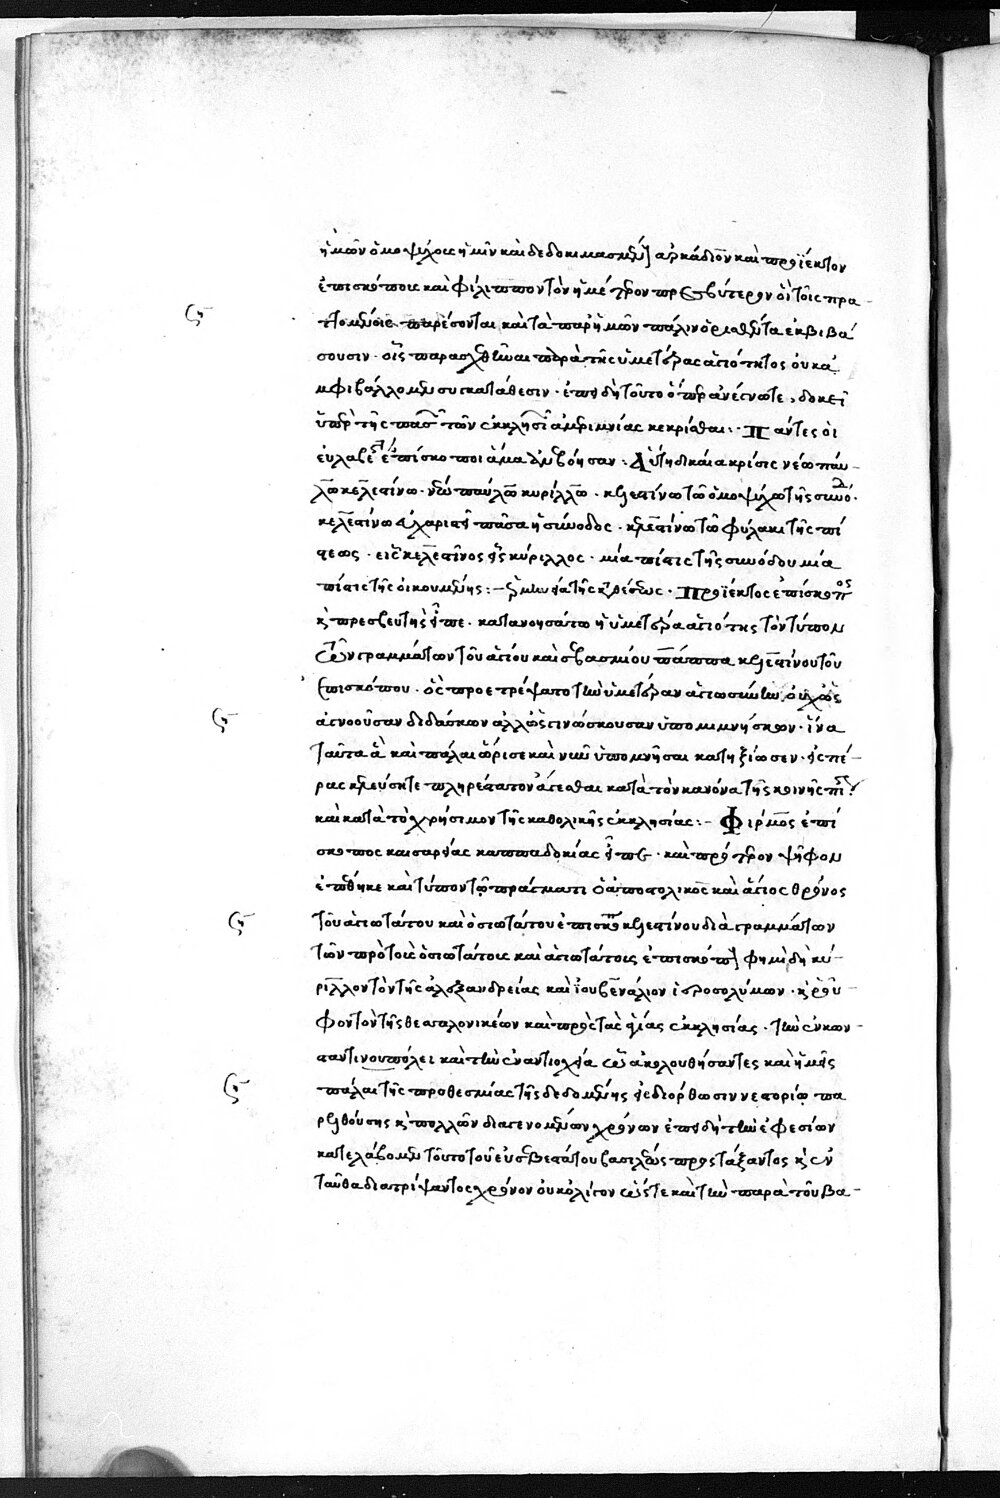 ἡμῶν ὁμοψύχοις ἡμῖν καὶ δεδοκιμασμέν ἀρκάδιον καὶ προϊέκτον
ἐπισκόποις καὶ φίλιππον τὸν ἡμέτερον πρεσβύτερον οἳ τοῖς πρα-
ττομένοις παρέσονται καὶ τὰ παρ' ἡμῶν πάλιν ὁρισθέντα ἐκβιβά
σουσιν · οἷς παρασχθῆναι παρὰ τῆς ὑμετέρας ἁγιότητος οὐκ ἀ
μφιβάλλομεν συγκατάθεσιν · ἐπειδὴ τοῦτο ὅπερ ἀνέγνωτε, δοκεῖ
ὑπὲρ τῆς πασ τῶν ἐκκλησι ἀμεριμνίας κεκρίσθαι :· Πάντες οἱ
εὐλαβεστ ἐπίσκοποι ἅμα ἀνεβόησαν : Αὕτη δικαία κρίσις νέω παύ-
λω κελεστίνω · νέω παύλω κυρίλλω · κελεστίνω τῶ ὁμοψύχω τῆς συνόδ ·
κελεστίνω εὐχαριστεῖ πᾶσα ἡ σύνοδος · κελεστίνω τῶ φύλακι τῆς πί
στεως · εἷς κελεστῖνος εἷς κύριλλος · μία πίστις τῆς συνόδου μία
πίστις τῆς οἰκουμένης :- Προϊέκτος ἐπίσκοπος
κ πρεσβευτὴς εἶπε · κατανοησάτω ἡ ὑμετέρα ἁγιότης τὸν τύπον
τῶν γραμμάτων τοῦ ἁγίου καὶ σεβασμίου πάππα κελεστίνου τοῦ
ἐπισκόπου · ὃς προετρέψατο τὴν ὑμετέραν ἁγιωσύνην οὐχ ὡς
ἀγνοοῦσαν διδάσκων ἀλλ' ὡς γινώσκουσαν ὑπομιμνήσκων · ἵνα
ταῦτα ἃ καὶ πάλαι ὥρισε καὶ νῦν ὑπομνῆσαι κατηξίωσεν · εἰς πέ-
ρας κελεύσητε πληρέστατον ἄγεσθαι κατὰ τὸν κανόνα τῆς κοινῆς πίστ
καὶ κατὰ τὸ χρήσιμον τῆς καθολικῆς ἐκκλησίας :- Φίρμος ἐπί
σκοπος καισαρείας καππαδοκίας εἶπε · καὶ πρότερον ψῆφον
ἐπέθηκε καὶ τύπον τῶ πράγματι ὁ ἀποστολικὸς καὶ ἅγιος θρόνος
τοῦ ἁγιωτάτου καὶ ὁσιωτάτου ἐπισκόπου κελεστίνου διὰ γραμμάτων
τῶν πρὸς τοὺς ὁσιωτάτους καὶ ἁγιωτάτους ἐπισκόπ φημὶ δὴ κύ-
ριλλον τὸν τῆς ἀλεξανδρείας καὶ ἰουβενάλιον ἱεροσολύμων · κ ῥοῦ-
φον τὸν τῆς θεσσαλονικέων καὶ πρὸς τὰς ἁγίας ἐκκλησίας · τὴν ἐν κων-
σταντινουπόλει καὶ τὴν ἐν ἀντιοχεία ὧ ἀκολουθήσαντες καὶ ἡμεῖς
πάλαι τῆς προθεσμίας τῆς δεδομένης εἰς διόρθωσιν νεστορίω πα
ρελθούσης κ πολλῶν διαγενομένων χρόνων ἐπειδὴ τὴν ἐφεσίων
κατελάβομεν τοῦτο τοῦ εὐσεβεστάτου βασιλέως προστάξαντος κ ἐν
ταῦθα διατρίψαντος χρόνον οὐκ ὀλίγον ὥστε καὶ τὴν παρὰ τοῦ βα-